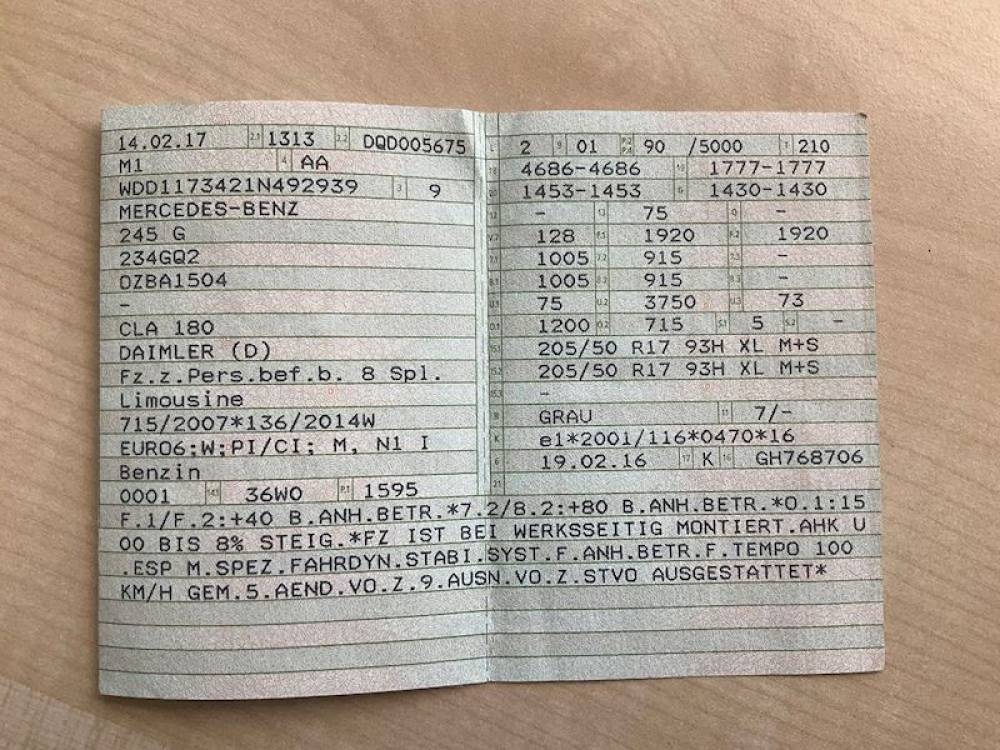 14.02.17 2.1 1313 2.2 DQD005675
M1 4 AA
WDD1173421N492939 3 9
MERCEDES-BENZ
245 G
234GQ2
OZBA1504
-
CLA 180
DAIMLER (D)
Fz.z.Pers.bef.b. 8 Spl.
Limousine
715/2007*136/2014W
EURO6;W;PI/CI; M, N1 I
Benzin
0001 36W0 1595
L 2 9 01 90 /5000 T 210
18 4686-4686 19 1777-1777
20 1453-1453 G 1430-1430
12 - 13 75 Q -
V.7 128 F.1 1920 F.2 1920
7.1 1005 7.2 915 7.3 -
8.1 1005 8.2 915 8.3 -
U.1 75 U.2 3750 U.3 73
O.1 1200 O.2 715 S.1 5 S.2 -
15.1 205/50 R17 93H XL M+S
15.2 205/50 R17 93H XL M+S
15.3 -
R GRAU 11 7/-
K e1*2001/116*0470*16
6 19.02.16 17 K 16 GH768706
21
F.1/F.2:+40 B.ANH.BETR.*7.2/8.2:+80 B.ANH.BETR.*O.1:15
00 BIS 8% STEIG.*FZ IST BEI WERKSSEITIG MONTIERT.AHK U
.ESP M.SPEZ.FAHRDYN.STABI.SYST.F.ANH.BETR.F.TEMPO 100
KM/H GEM.5.AEND.VO.Z.9.AUSN.VO.Z.STVO AUSGESTATTET*